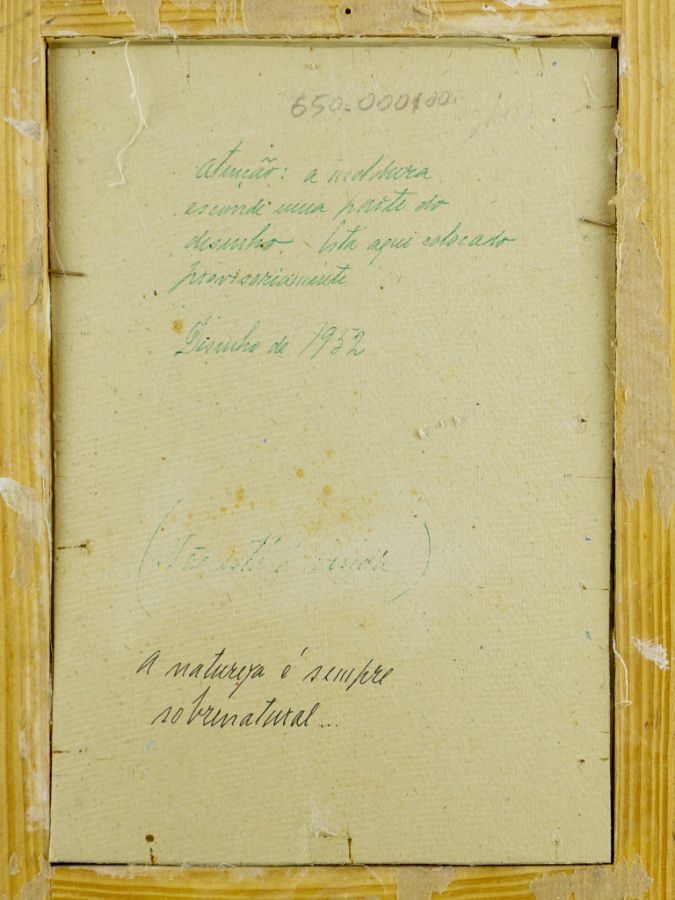 650.000$00
Atenção: a moldura
esconde uma parte do
desenho. Está aqui colocado
provisoriamente
Desenho de 1952
(Não está à venda)
A natureza é sempre
sobrenatural...